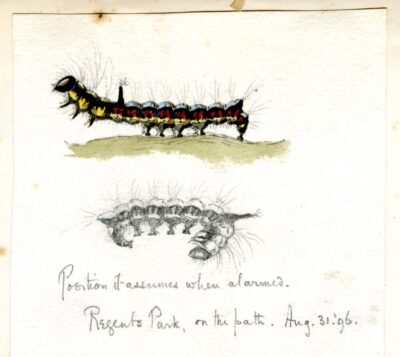 Position it assumes when alarmed.
Regents Park, on the path. Aug. 31. '96.